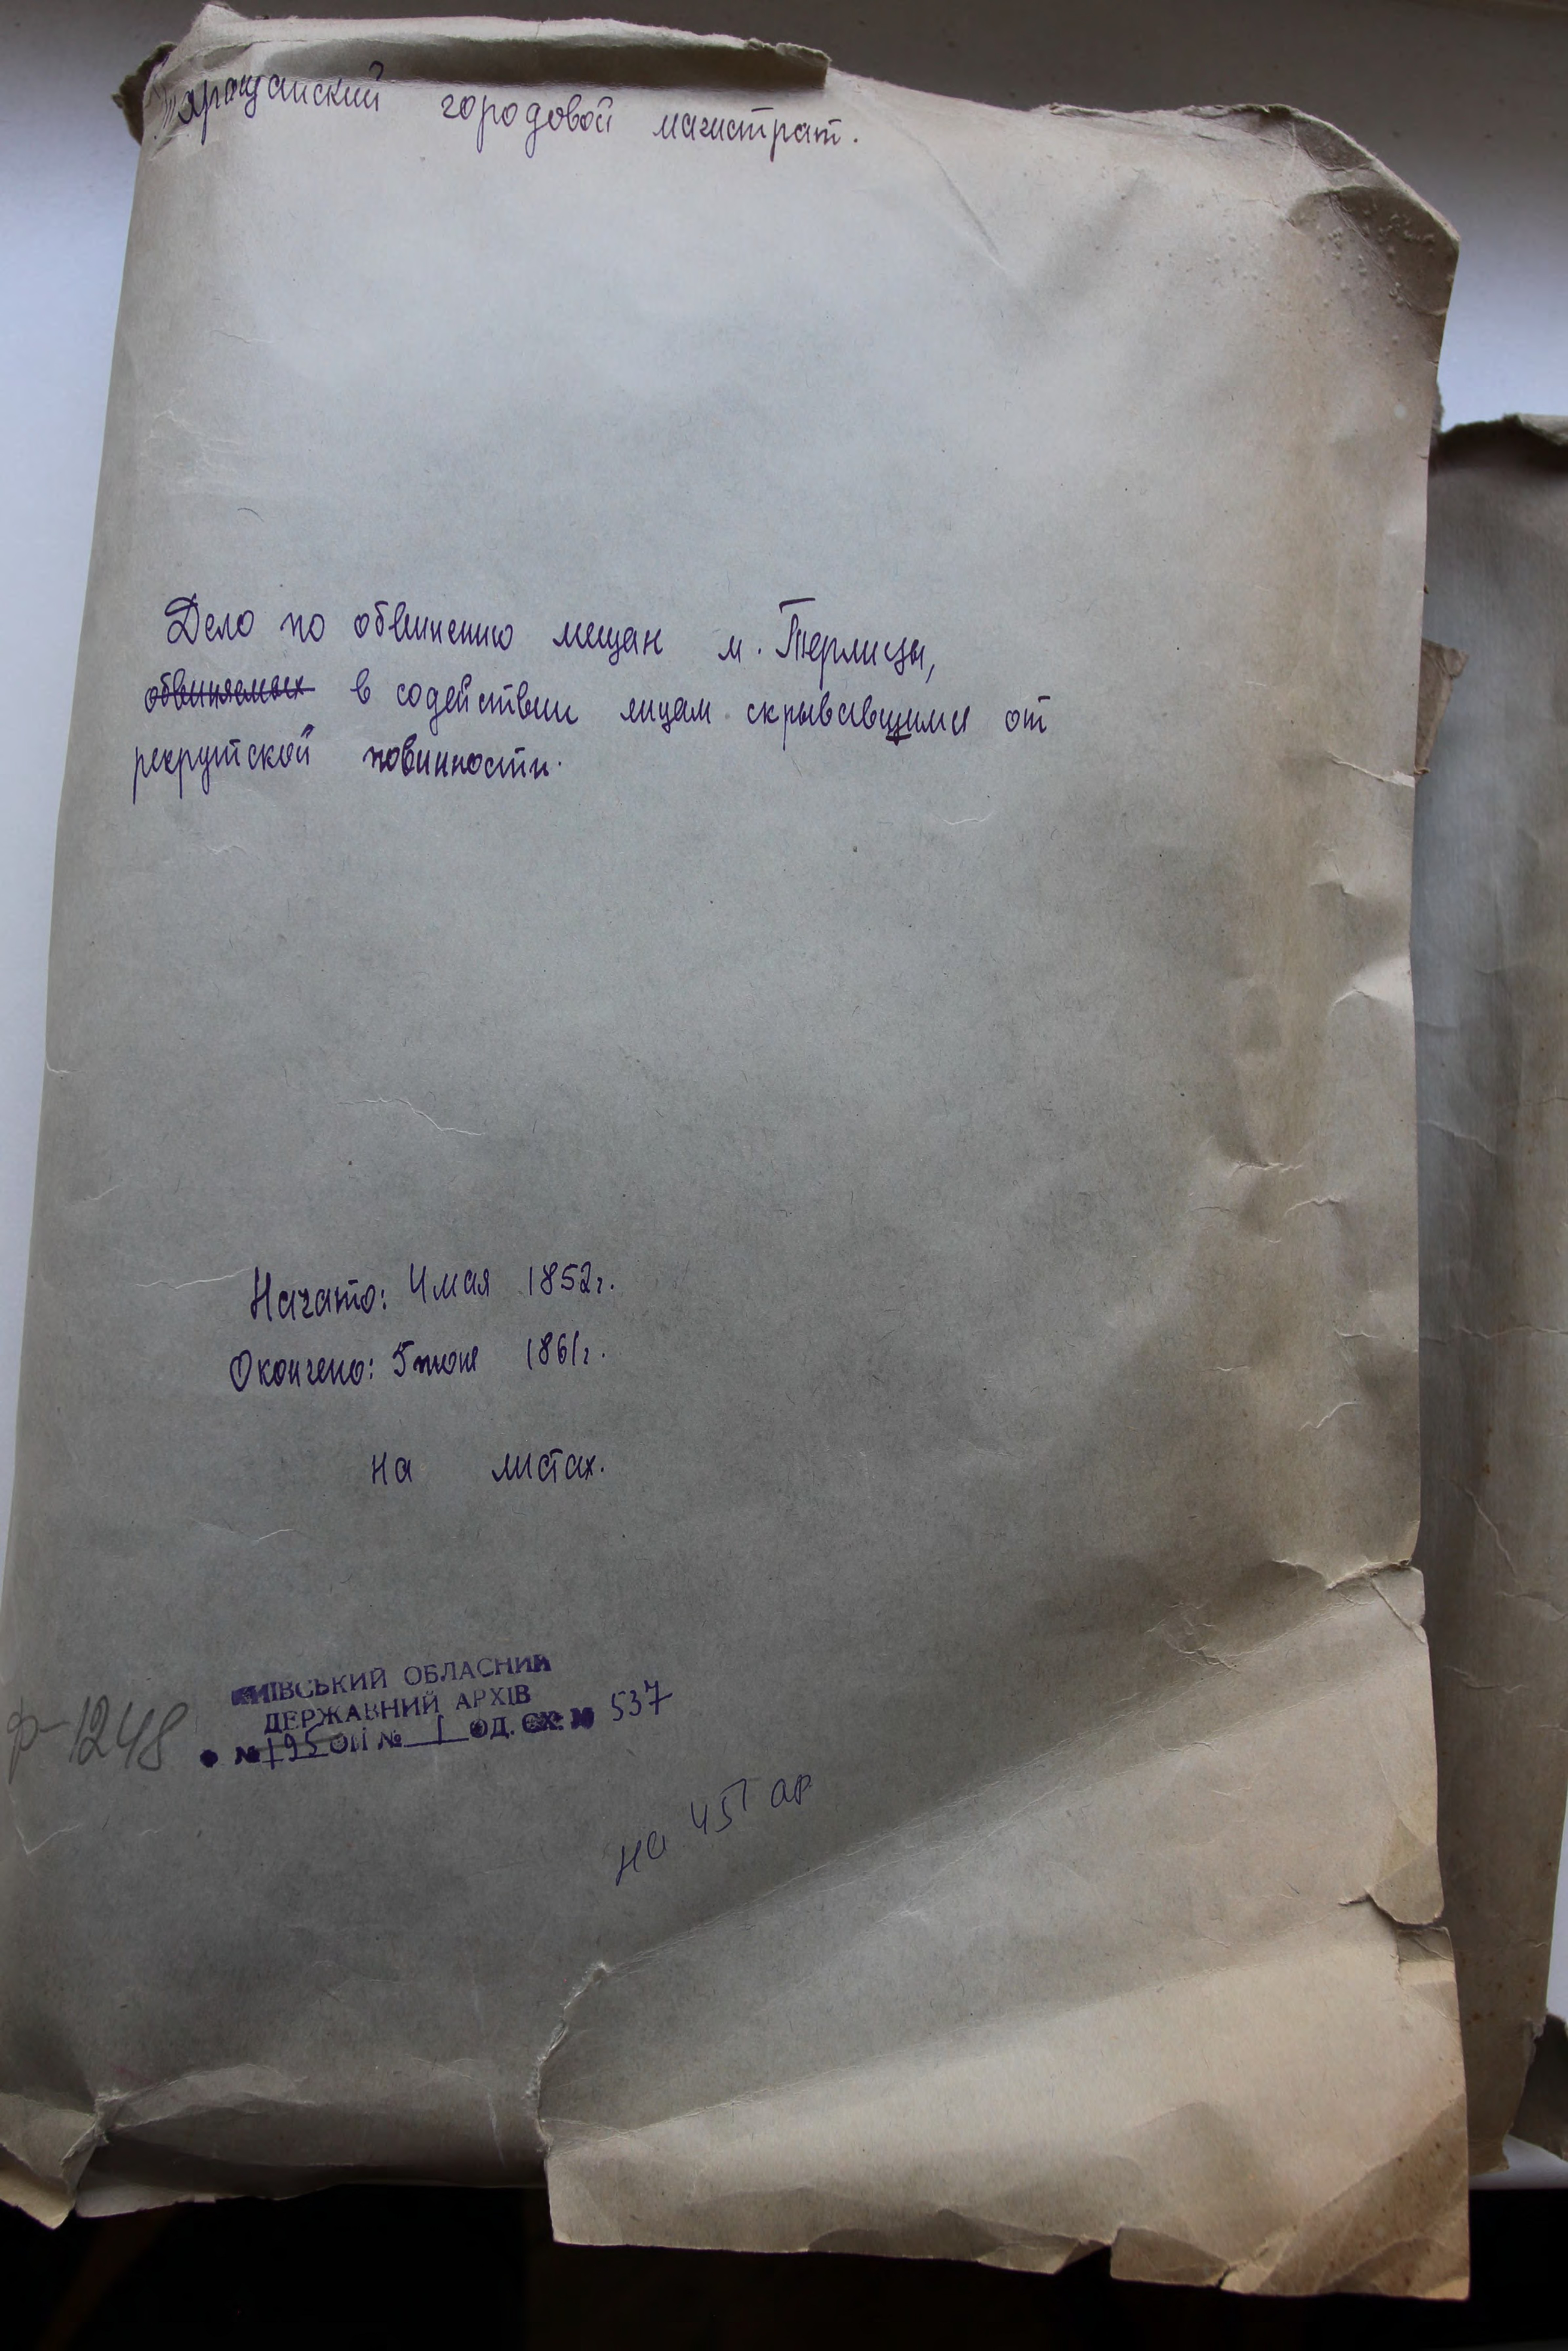 Таращанский городовой магистрат.
Дело по обвинению мещан м. Терлицы,
обвиняемых в содействии лицам скрывавщимся от
рекрутской повинности.
Начато: 4 мая 1852 г.
Окончено: 5 июня 1861 г.
на листах.
КИЇВСЬКИЙ ОБЛАСНИЙ
ДЕРЖАВНИЙ АРХІВ
ф-1248 № 195 ОП № 1 ОД. ЗХ. № 537
на 451 ар